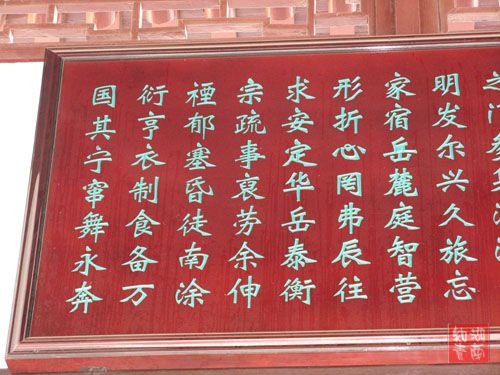 之门
明发尔兴久旅忘
家宿岳麓庭智营
形折心罔弗辰往
求安定华岳泰衡
宗疏事裒劳余伸
禋郁塞昏徒南涂
衍亨衣制食备万
国其宁窜舞永奔